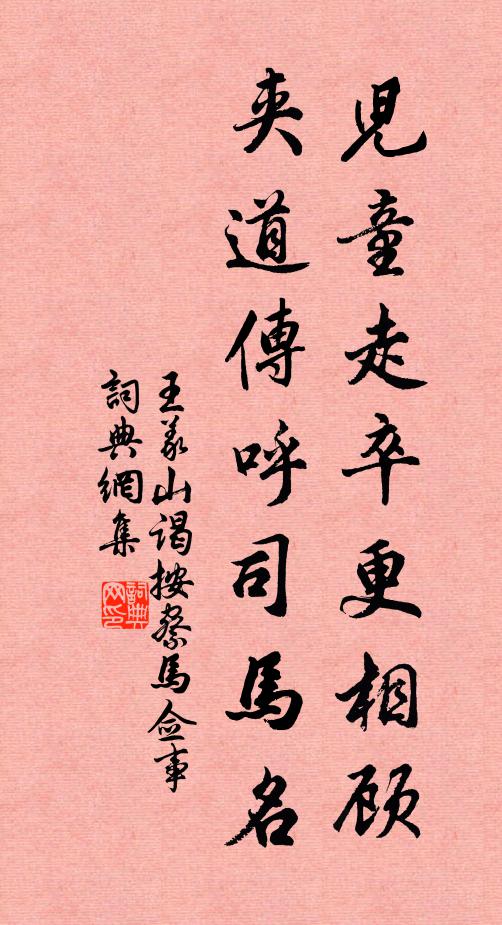 兒童走卒更相顾
夾道傳呼司馬名
王義山謁按察馬僉事
詞典網集
詞典网印